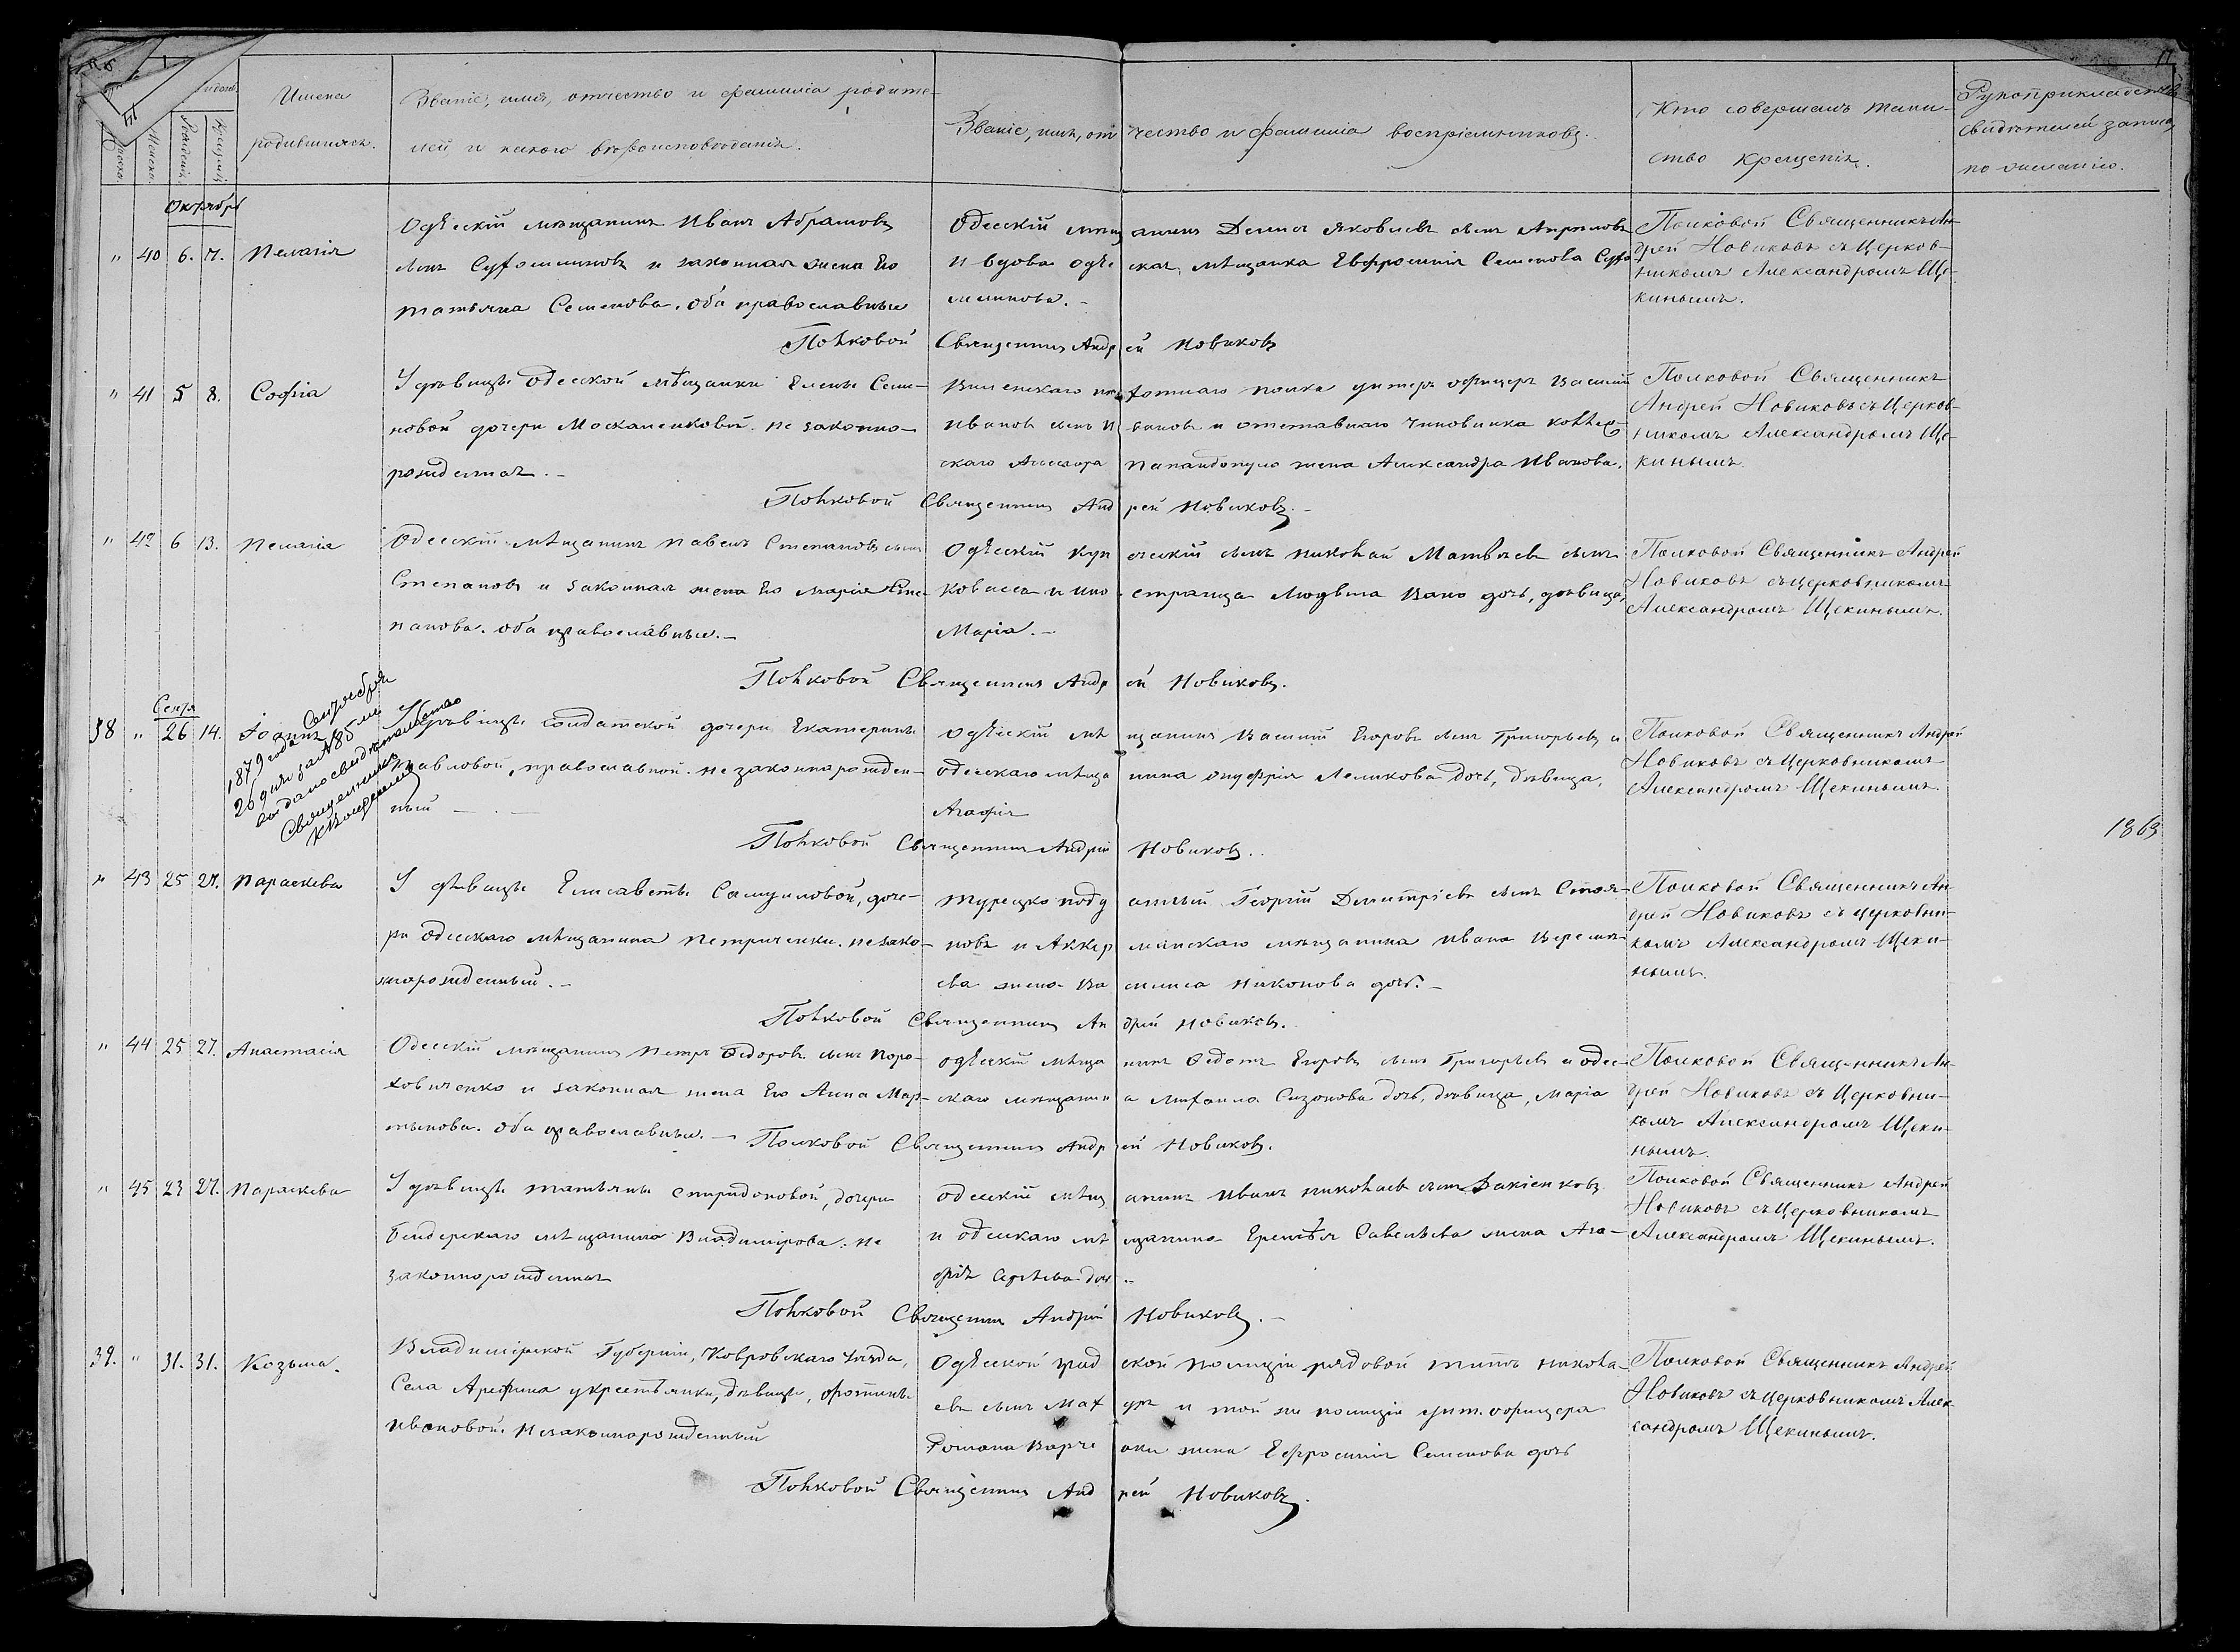 Имена
родившихся.
Званіе, имя, отчество и фамилія родите-
лей и какого вѣроисповѣданія.
Званіе, имя, отчество и фамилія воспріемниковъ.
Кто совершалъ таин-
ство крещенія.
Рукоприкладство
свидѣтелей записи
по желанію.
Мужеска. Женска. Рожденія. Крещенія
Октябрь
" 40 6. 7. Пелагія
Одѣсскій мѣщанинъ Иванъ Абрамовъ
сынъ и законная жена Его
татьяна Семенова. оба православные
Одесскій мѣщанинъ Яковлевъ сынъ
и вдова одѣсская, мѣщанка Евфросинія Семенова

Полковой Священникъ Ан-
дрей Новиковъ съ Церков-
никомъ Александромъ Ще-
кинымъ.
Полковой Священникъ Андрей Новиковъ
" 41 5 8. Софія
У дѣвицы Одесской мѣщанки Елены Семе-
новой дочери Москаленковой. не законно-
рожденная. –
Виленскаго пѣхотнаго полка унтеръ офицеръ Василій
Ивановъ сынъ Ивановъ и отставнаго чиновника коллеж-
скаго Ассесора Папандопуло жена Александра Иванова.
Полковой Священникъ
Андрей Новиковъ съ Церков-
никомъ Александромъ Ще-
кинымъ.
Полковой Священникъ Андрей Новиковъ. –
" 42 6 13. Пелагія
Одесскій мѣщанинъ Павелъ Степановъ сынъ
Степановъ и законная жена Его Марія Сте-
панова. оба православные. –
Одѣсскій купеческій сынъ Николай Матвѣевъ сынъ
Ковалев и иностранца Людвига дочь, дѣвица,
Марія. –
Полковой Священникъ Андрей
Новиковъ съ церковникомъ
Александромъ Щекинымъ.
Полковой Священникъ Андрей Новиковъ.
Сентя
38 " 26 14. Іоаннъ
1879 года Сентября
20 дня за № 85 м
выдано свидѣтельство
Священникъ

У дѣвицы солдатской дочери Екатерины
Павловой, православной. незаконнорожден-
ный –
Одѣсскій мѣщанинъ Василій Егоровъ сынъ Григорьевъ и
одесскаго мѣщанина Онуфрія дочь, дѣвица,
Агафія
Полковой Священникъ Андрей
Новиковъ съ Церковникомъ
Александромъ Щекинымъ.
Полковой Священникъ Андрей Новиковъ.
1863
" 43 25 27. Параскева
У дѣвицы Елисаветы Самуиловой, доче-
ри одесскаго мѣщанина Петриченки. незако-
ннорожденный. –
Турецко подданный Георгій Димитріевъ сынъ Стоя-
новъ и Аккерманскаго мѣщанина Ивана
жена Василиса Никонова дочь. –
Полковой Священникъ Ан-
дрей Новиковъ съ церковни-
комъ Александромъ Щеки-
нымъ.
Полковой Священникъ Андрей Новиковъ.
" 44 25 27. Анастасія
Одесскій мѣщанинъ Петръ Ѳедоровъ сынъ Поро-
ховниченко и законная жена Его Анна Мар-
тынова. оба православные. –
Одѣсскій мѣщанинъ Ѳедотъ Егоровъ сынъ Григорьевъ и одес-
скаго мѣщанина Михаила Сизонова дочь, дѣвица, Марія
Полковой Священникъ Ан-
дрей Новиковъ съ Церковни-
комъ Александромъ Щеки-
нымъ.
Полковой Священникъ Андрей Новиковъ.
" 45 23 27. Параскева
У дѣвицы татьяны спиридоновой, дочери
Бендерскаго мѣщанина Владимірова. не
законнорожденная
Одесскій мѣщанинъ Иванъ Николаевъ сынъ
и одесскаго мѣщанина Еремѣя Савельева жена Ага-
фія Сергѣева дочь –
Полковой Священникъ Андрей
Новиковъ съ Церковникомъ
Александромъ Щекинымъ.
Полковой Священникъ Андрей Новиковъ. –
39. " 31. 31. Козьма.
Владимірской Губерніи, Ковровскаго уѣзда,
Села Арефина у крестьянки, дѣвицы, фотиньи
Ивановой. Незаконнорожденный
Одѣсской градской полиціи рядовой титъ Никола-
евъ сынъ и той же полиціи унт. офицера
Романа жена Ефросинія Семенова дочь
Полковой Священникъ Андрей
Новиковъ съ церковникомъ Алек-
сандромъ Щекинымъ.
Полковой Священникъ Андрей Новиковъ.